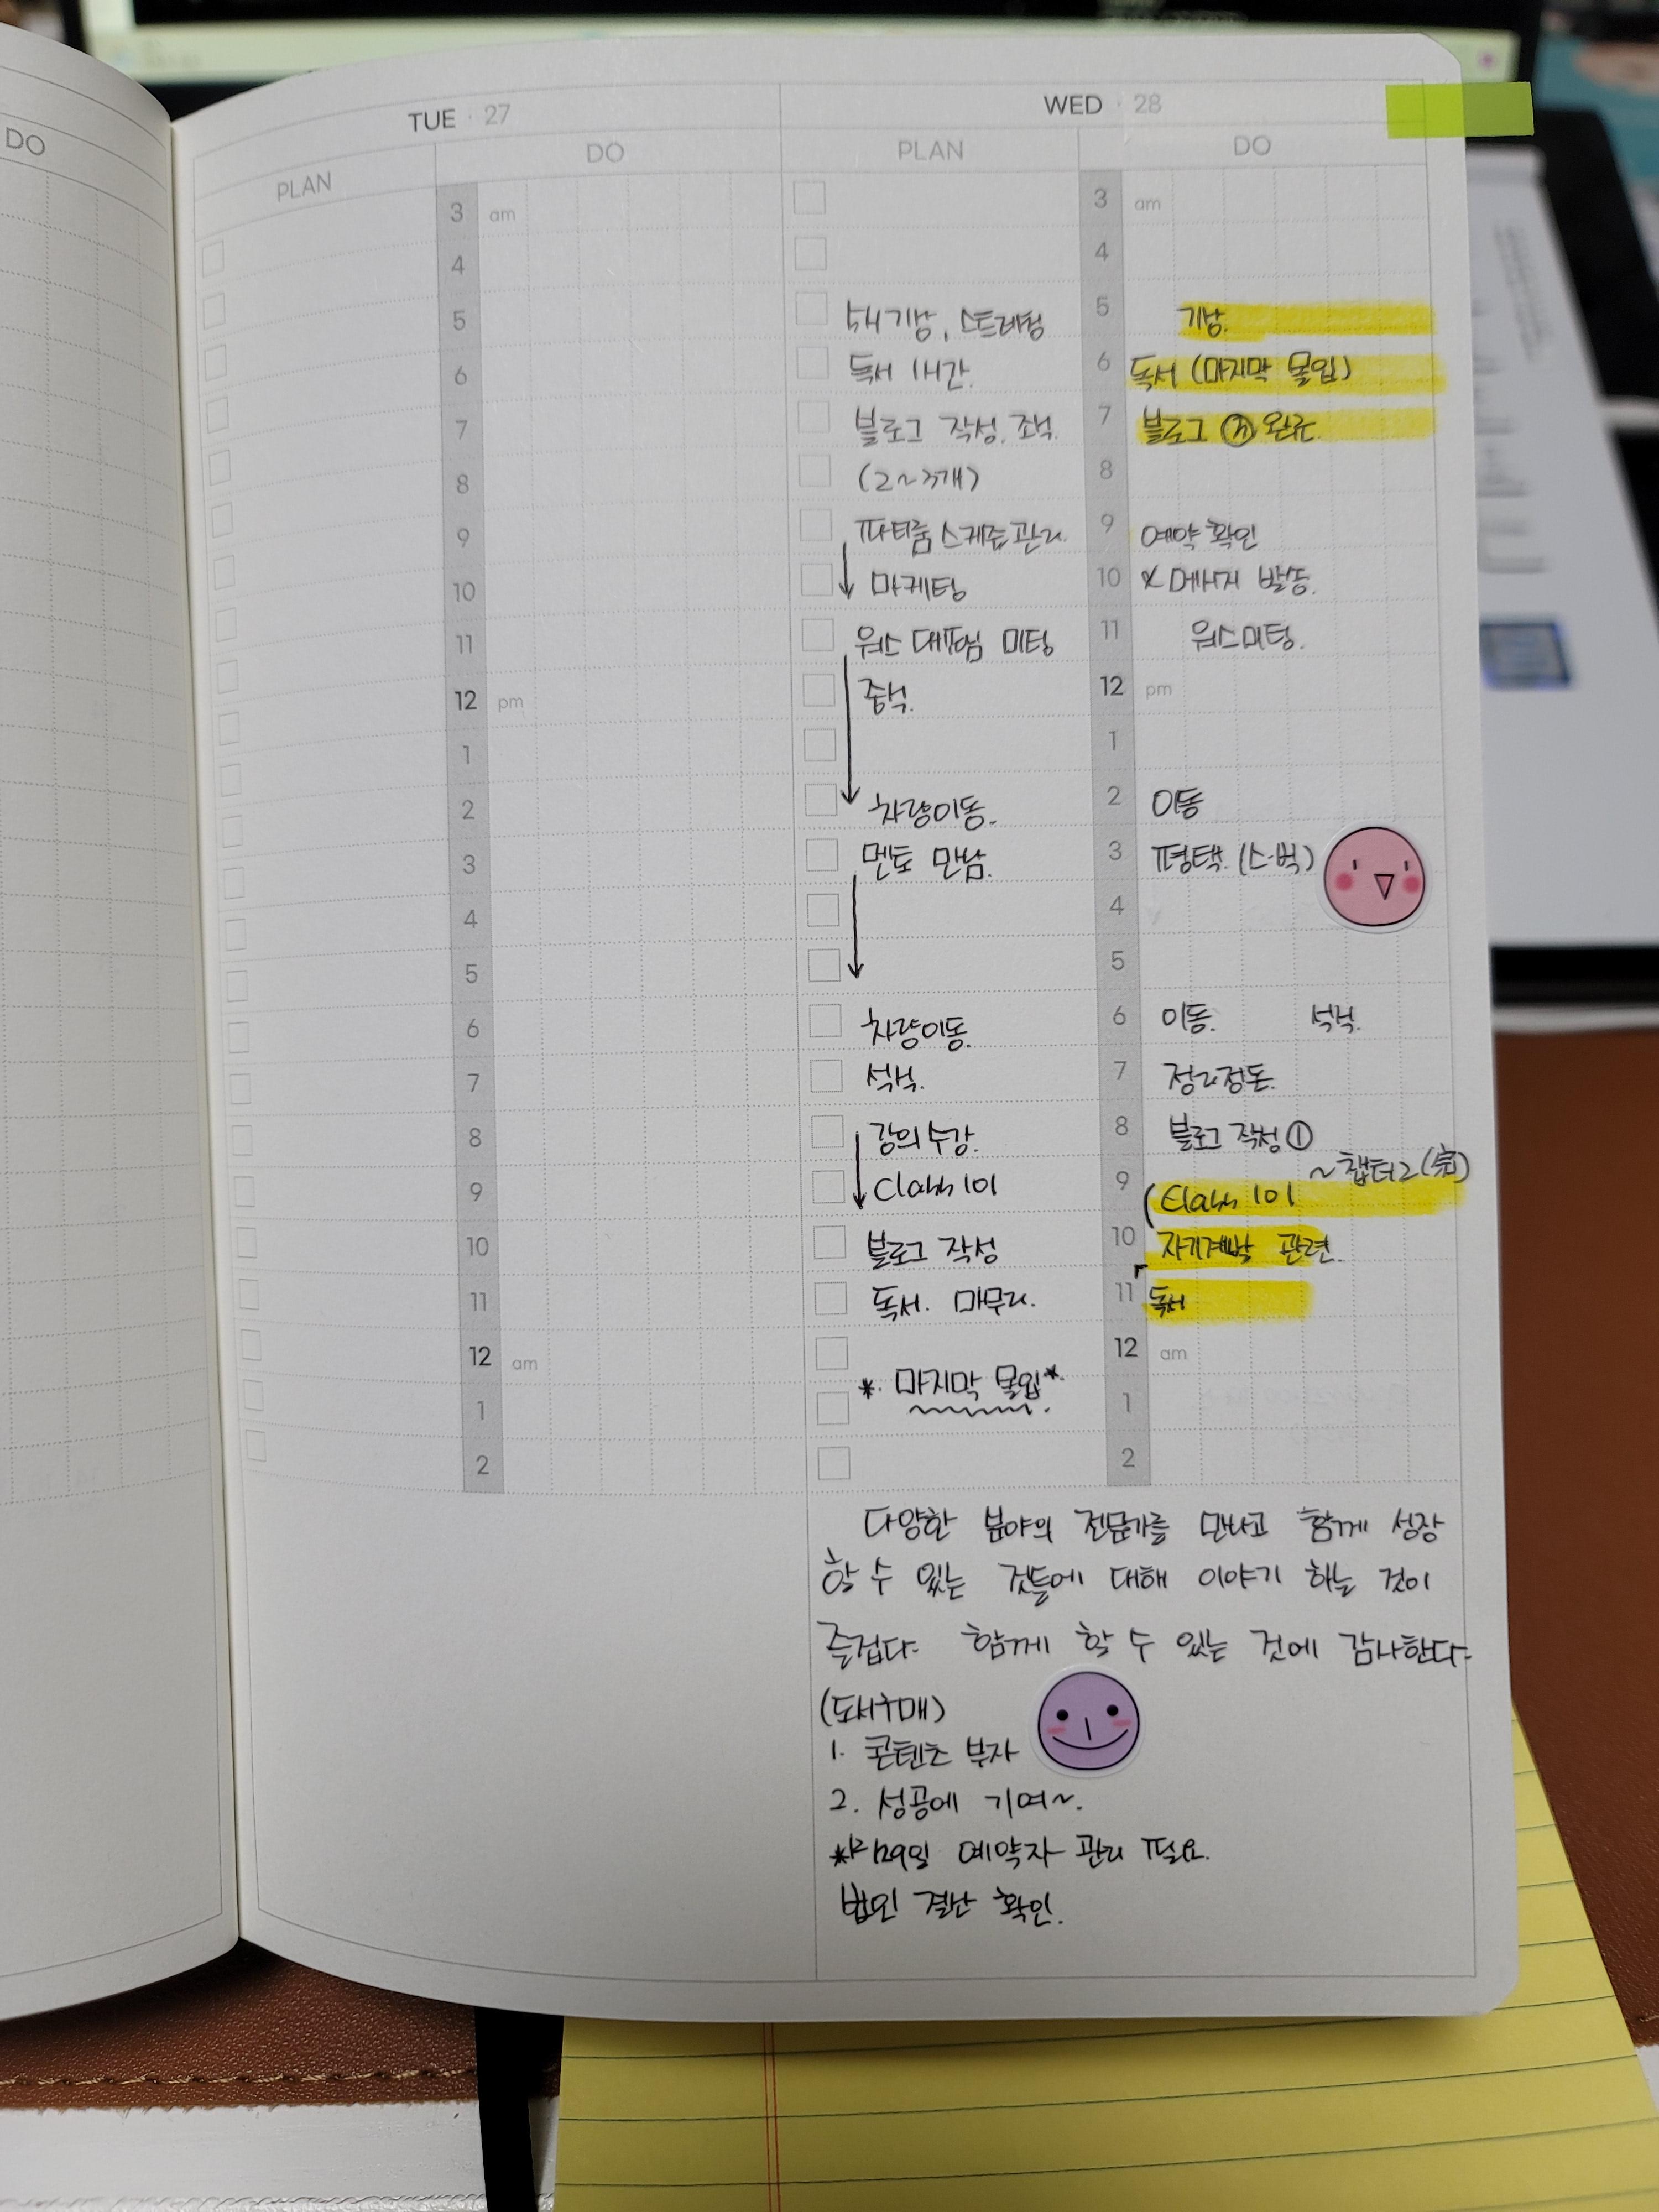 DO
TUE · 27
PLAN
DO
3 am
4
5
6
7
8
9
10
11
12 pm
1
2
3
4
5
6
7
8
9
10
11
12 am
1
2
WED · 28
PLAN
DO
3 am
4
5시 기상, 스트레칭
5 기상.
독서 1시간.
6 독서 (마지막 몰입)
블로그 작성. 조식.
7 블로그 완료
(2~3개)
8
파티룸 스케쥴관리.
9 예약 확인
마케팅
10 메시지 발송.
워스 대표님 미팅
11 워스미팅.
중식.
12 pm
1
차량이동.
2 이동
멘토 만남.
3 평택. (스·벅)
4
5
차량이동.
6 이동. 석식.
석식.
7 정리정돈.
강의 수강.
8 블로그 작성①
~챕터2(完)
Class 101
9 (Class 101
블로그 작성
10 자기계발 관련.
독서. 마무리.
11 독서
12 am
* 마지막 몰입*
1
2
다양한 분야의 전문가를 만나고 함께 성장
할 수 있는 것들에 대해 이야기 하는 것이
즐겁다. 함께 할 수 있는 것에 감사한다.
(도서구매)
1. 콘텐츠 부자
2. 성공에 기여~.
29일 예약자 관리 필요.
법인 결산 확인.